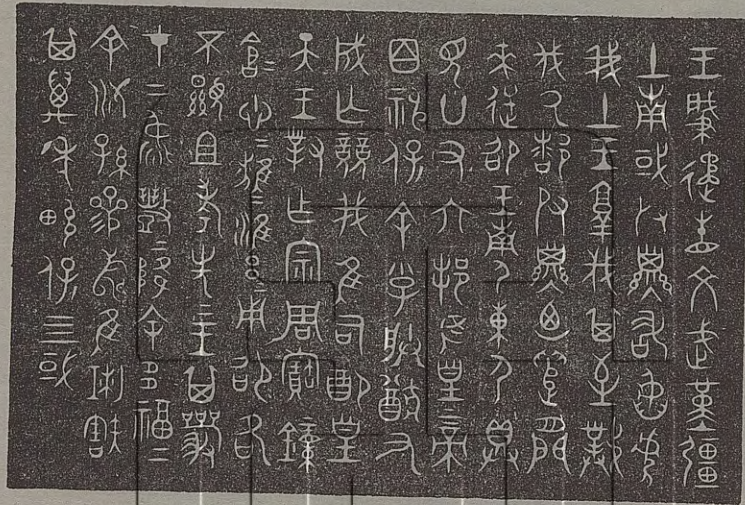 王肇遹省文武堇疆
土南或𠬝孳敢臽處
我土王敦伐其至撲
伐氒都𠬝孳廼遣閒
來逆卲王南尸東尸具
見廿又六邦隹皇上帝
百神保余小子朕猷又
成亡競我隹司配皇
天王對乍宗周寶鐘
倉＝悤＝雝＝用卲各
不顯且考先＝王＝其嚴
才上降余多福＝
余順孫參壽隹琍㝬
其萬年畯保四或